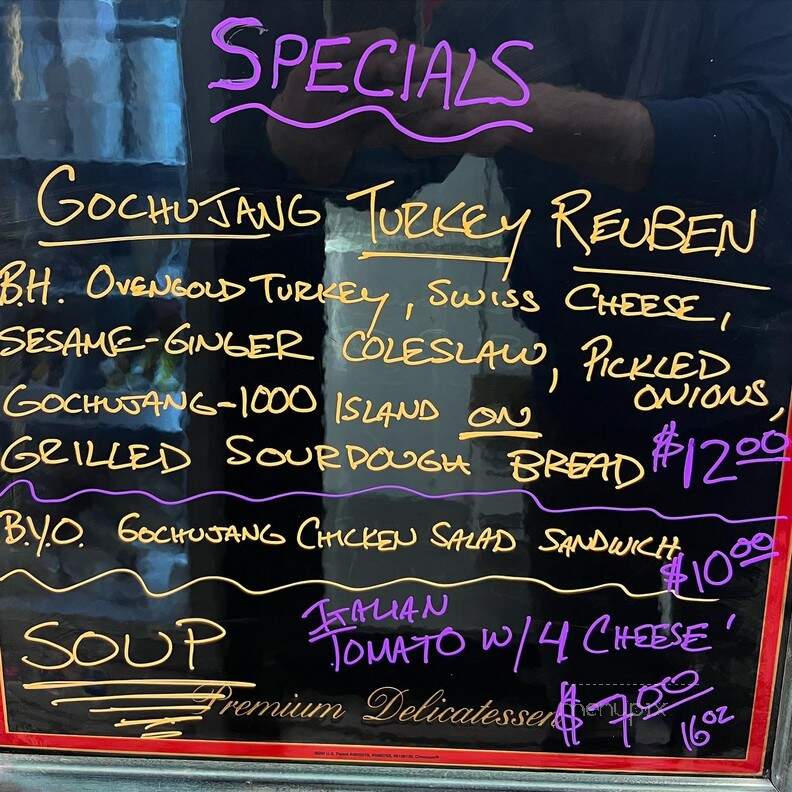 SPECIALS
GOCHUJANG TURKEY REUBEN
B.H. OVENGOLD TURKEY, SWISS CHEESE,
SESAME-GINGER COLESLAW, PICKLED ONIONS,
GOCHUJANG-1000 ISLAND ON
GRILLED SOURDOUGH BREAD $12.00
B.Y.O. GOCHUJANG CHICKEN SALAD SANDWICH
$10.00
SOUP
ITALIAN
TOMATO W/ 4 CHEESE
Premium Delicatessen
$7.00
16 OZ
menupix